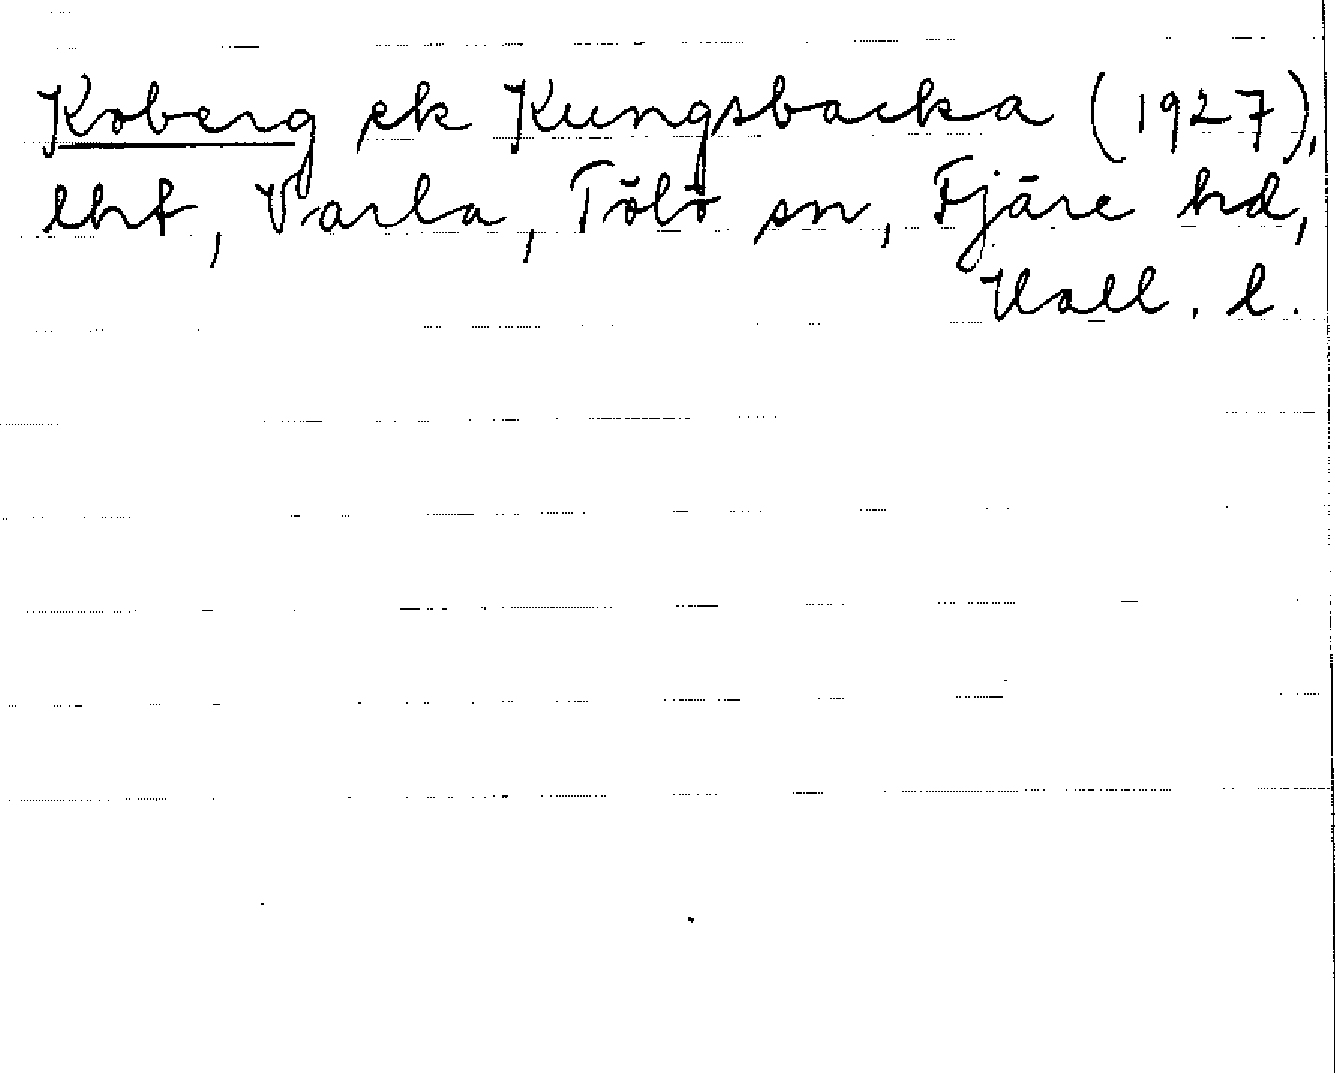 Koberg ek Kungsbacka (1927),
lht, Varla, Tölö sn, Fjäre hd,
Hall. l.